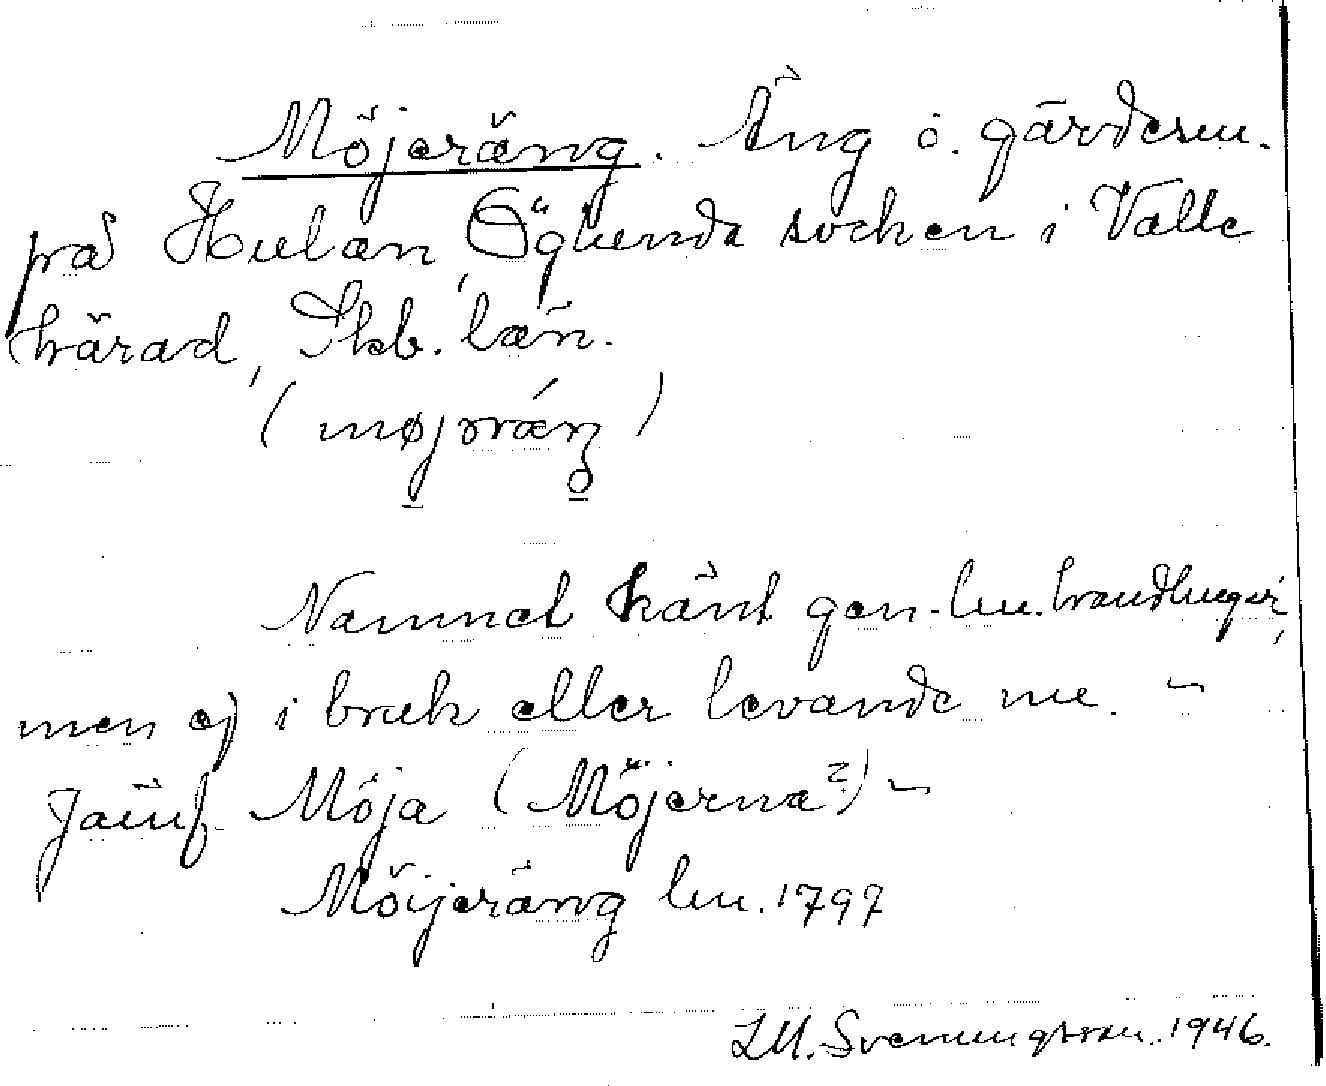 Möjeräng. Äng o. gärdesnr.
på Hulan, Öglunda socken i Valle
härad, Skb. län.
(møjəræŋ)
Namnet känt gen. lm. handlingar,
men ej i bruk eller levande nu. –
Jämf. Möja (Möjerna?) –
Möijeräng lm. 1797
LM. Svenungsson. 1946.